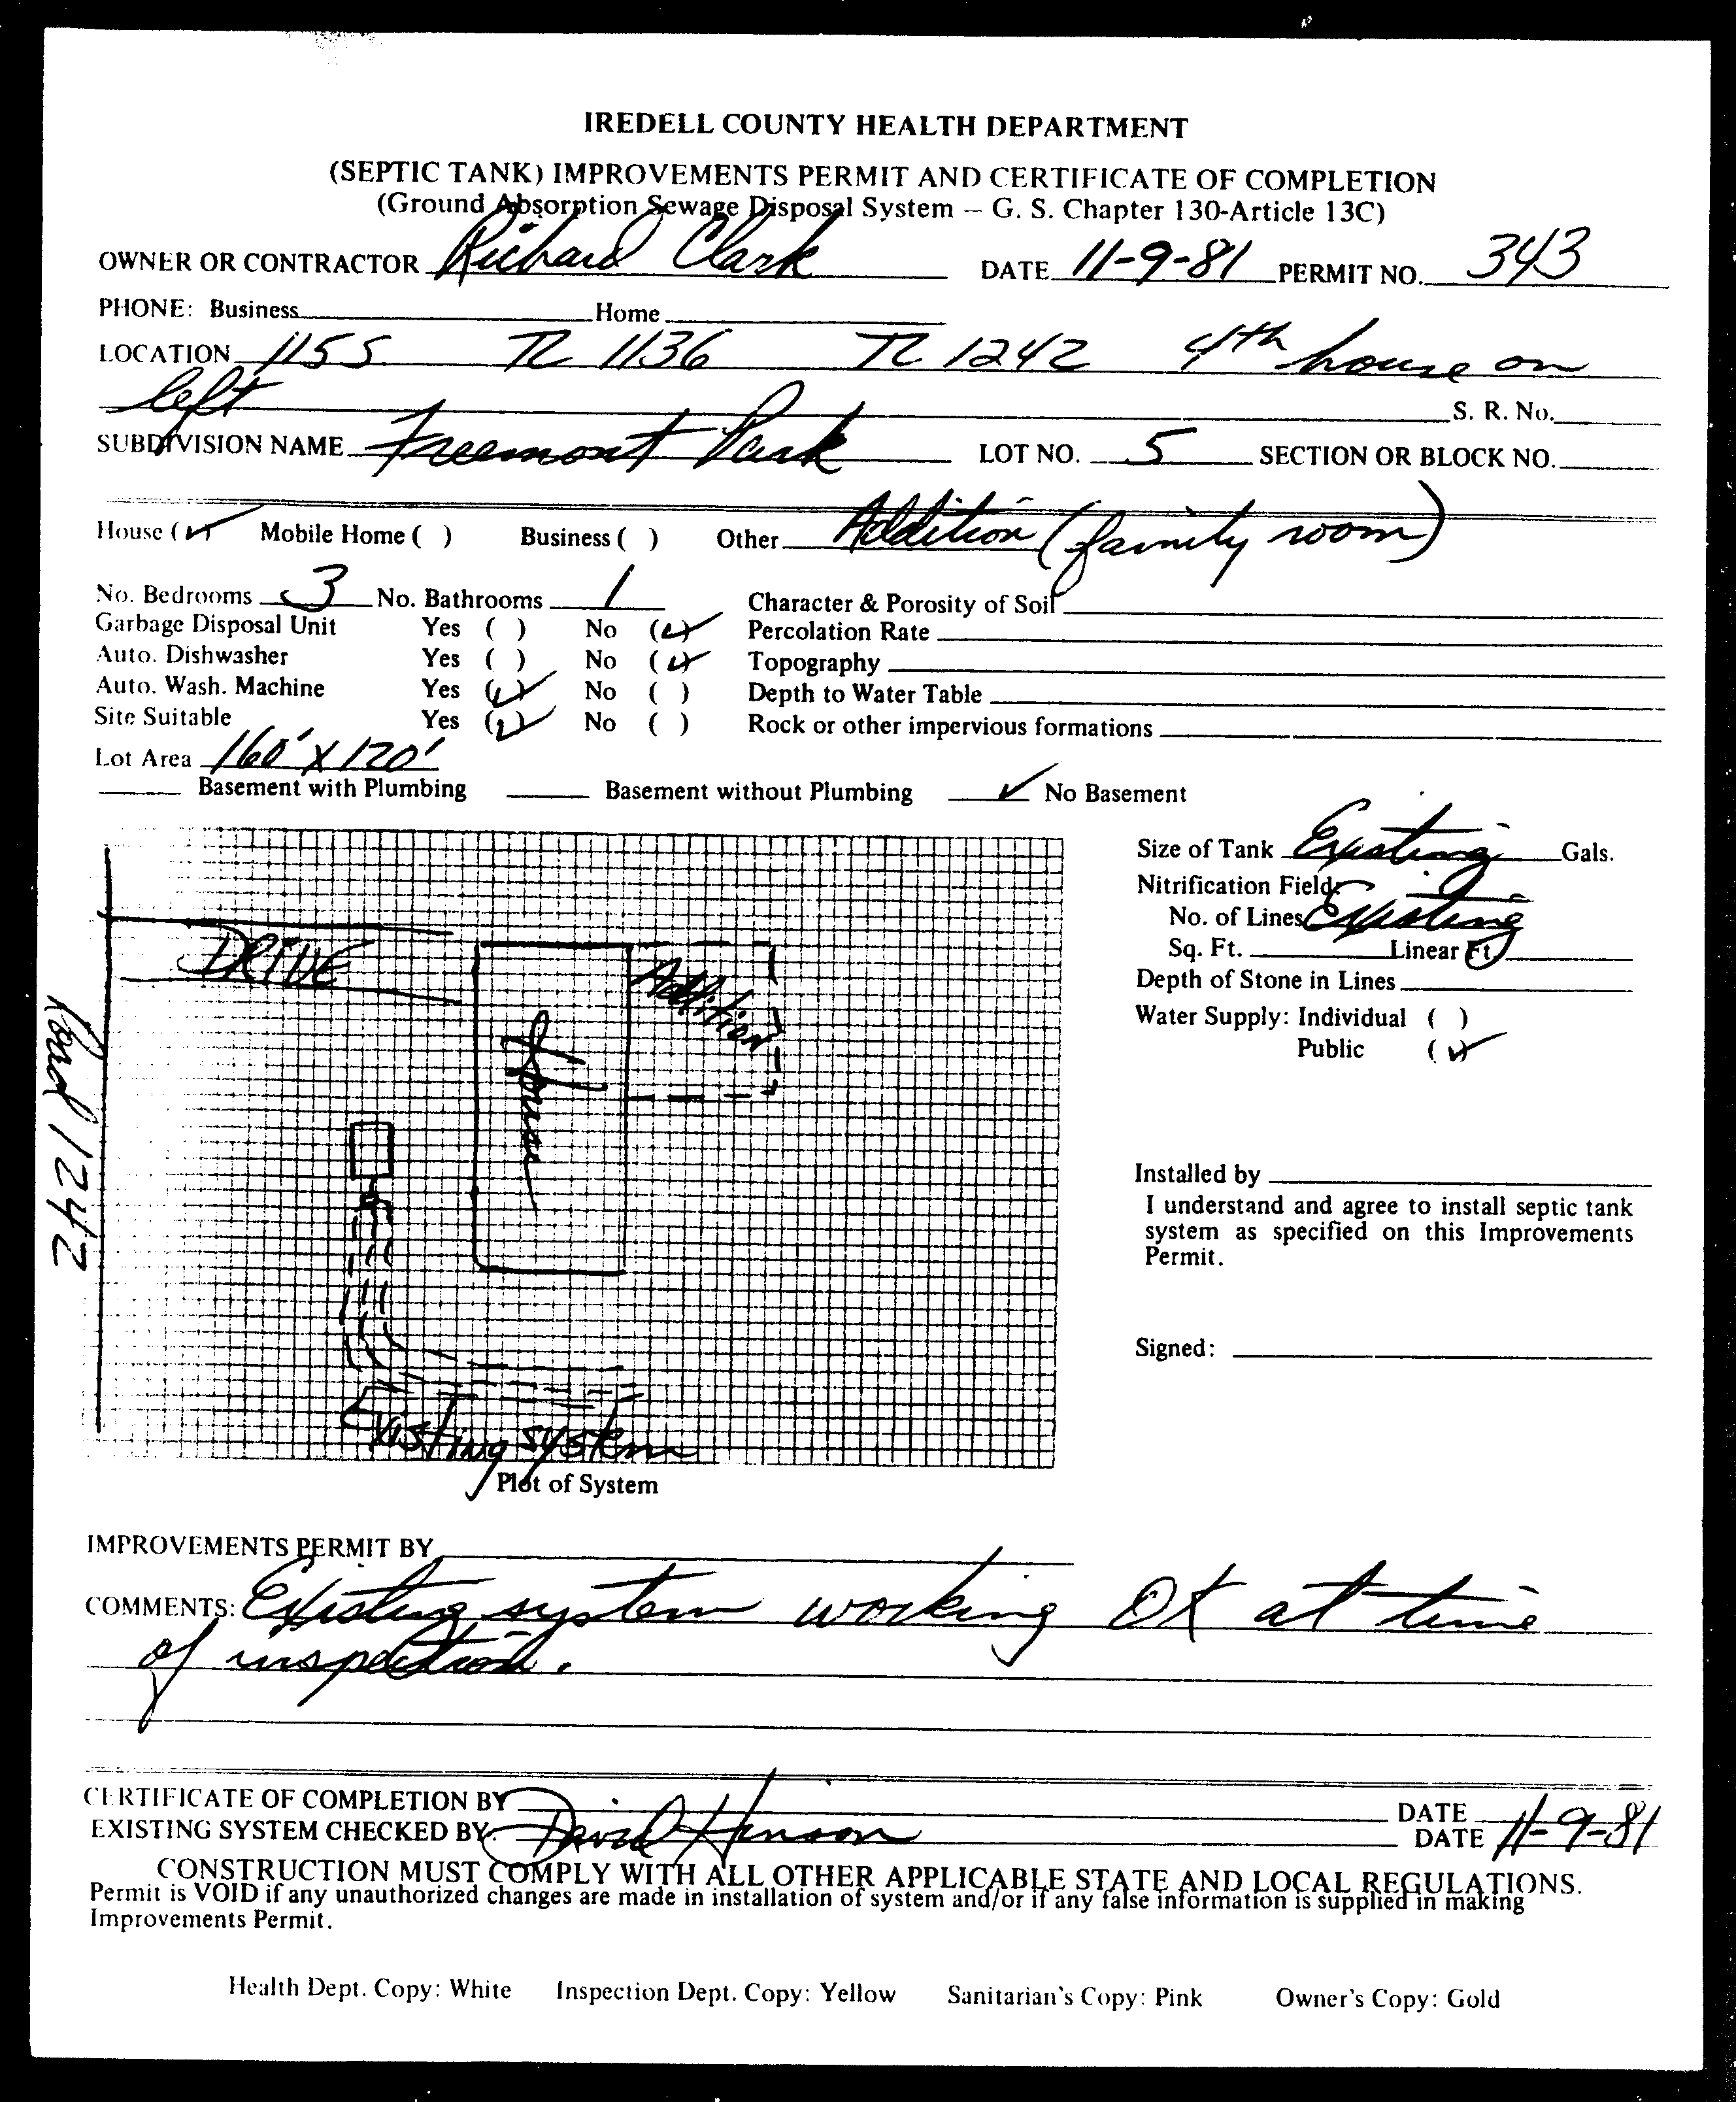 IREDELL COUNTY HEALTH DEPARTMENT
(SEPTIC TANK) IMPROVEMENTS PERMIT AND CERTIFICATE OF COMPLETION
(Ground Absorption Sewage Disposal System — G. S. Chapter 130-Article 13C)
OWNER OR CONTRACTOR Richard Clark DATE 11-9-81 PERMIT NO. 343
PHONE: Business Home
LOCATION 115 S TL 1136 TL 1242 4th house on
left S. R. No.
SUBDIVISION NAME Freemont Park LOT NO. 5 SECTION OR BLOCK NO.
House (✓) Mobile Home ( ) Business ( ) Other Addition (family room)
No. Bedrooms 3 No. Bathrooms 1 Character & Porosity of Soil
Garbage Disposal Unit Yes ( ) No (✓) Percolation Rate
Auto. Dishwasher Yes ( ) No (✓) Topography
Auto. Wash. Machine Yes (✓) No ( ) Depth to Water Table
Site Suitable Yes (✓) No ( ) Rock or other impervious formations
Lot Area 160' X 120'
Basement with Plumbing Basement without Plumbing ✓ No Basement
Size of Tank Existing Gals.
Nitrification Field:
No. of Lines Existing
Sq. Ft. Linear Ft.
Depth of Stone in Lines
Water Supply: Individual ( )
Public (✓)
DRIVE
House
Addition
Road 1242
Existing system
Plot of System
Installed by
I understand and agree to install septic tank
system as specified on this Improvements
Permit.
Signed:
IMPROVEMENTS PERMIT BY
COMMENTS: Existing system working OK at time
of inspection.
CERTIFICATE OF COMPLETION BY DATE
EXISTING SYSTEM CHECKED BY: David Henson DATE 11-9-81
CONSTRUCTION MUST COMPLY WITH ALL OTHER APPLICABLE STATE AND LOCAL REGULATIONS.
Permit is VOID if any unauthorized changes are made in installation of system and/or if any false information is supplied in making
Improvements Permit.
Health Dept. Copy: White Inspection Dept. Copy: Yellow Sanitarian's Copy: Pink Owner's Copy: Gold